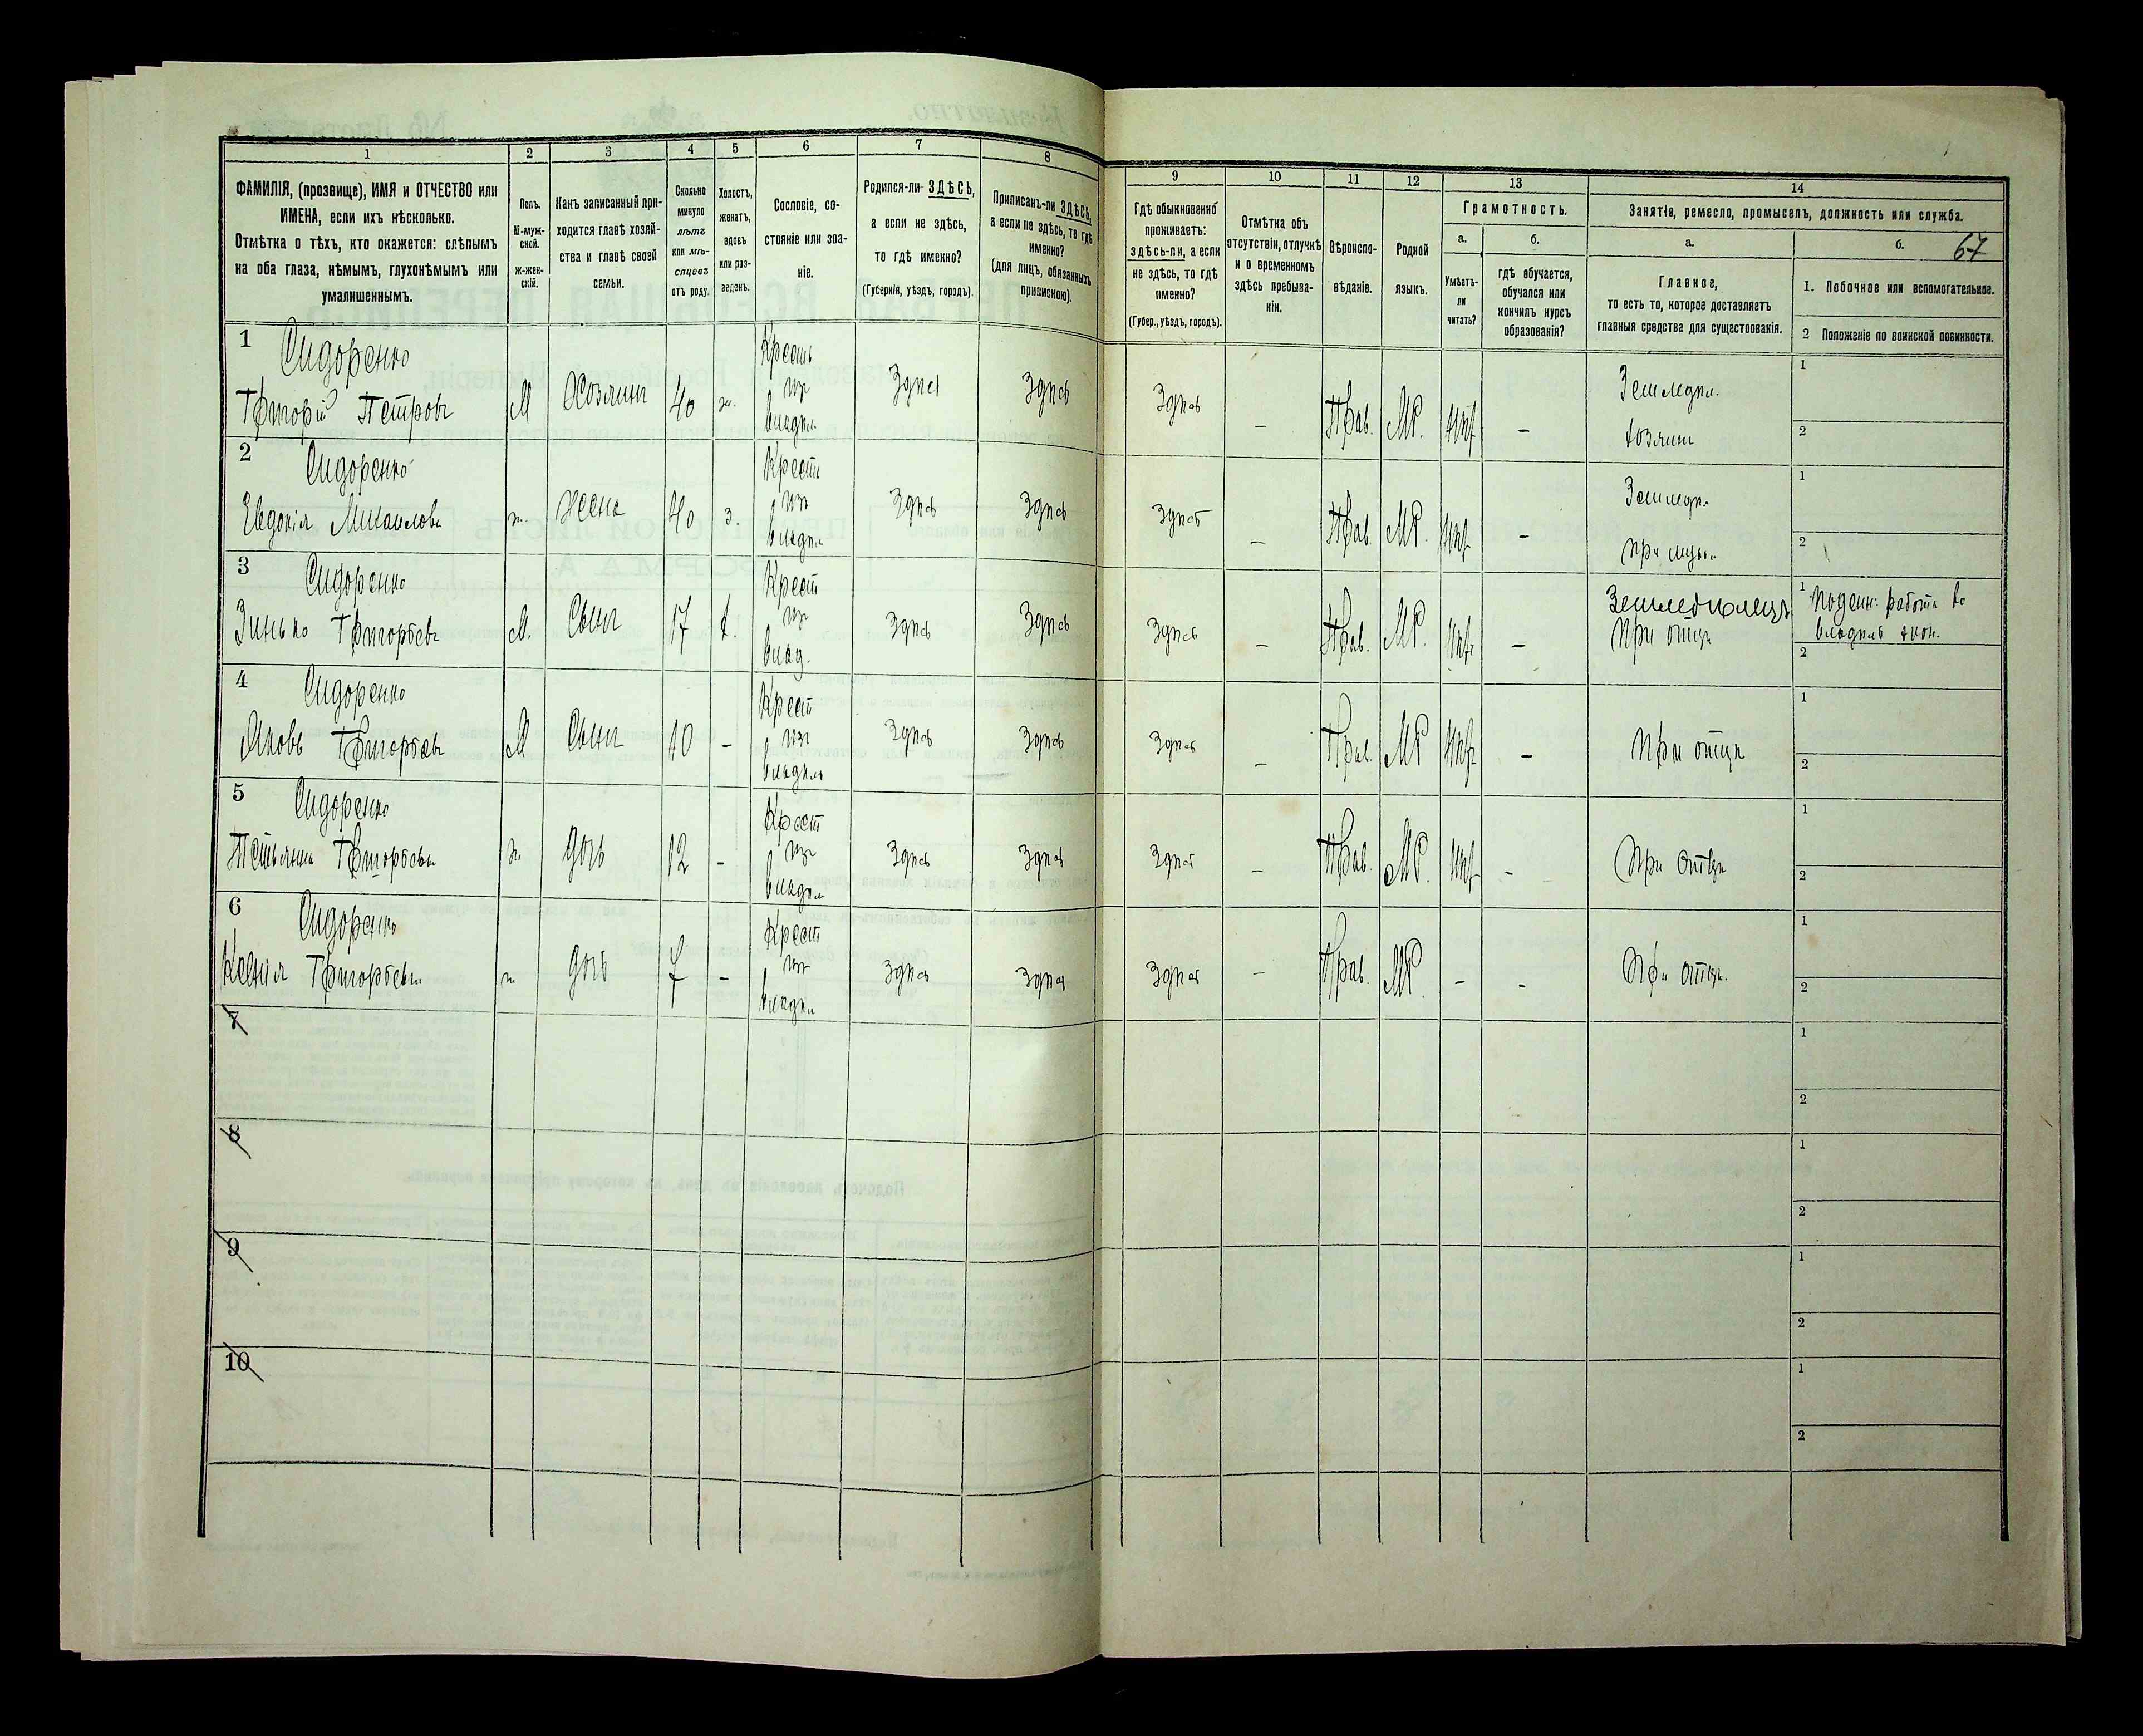 1
2
3
4
5
6
7
8
9
10
11
12
13
14
ФАМИЛІЯ, (прозвище), ИМЯ и ОТЧЕСТВО или
ИМЕНА, если ихъ нѣсколько.
Отмѣтка о тѣхъ, кто окажется: слѣпымъ
на оба глаза, нѣмымъ, глухонѣмымъ или
умалишеннымъ.
Полъ.
М-муж-
ской.
Ж-жен-
скій.
Какъ записанный при-
ходится главѣ хозяй-
ства и главѣ своей
семьи.
Сколько
минуло
лѣтъ
или мѣ-
сяцевъ
отъ роду.
Холостъ,
женатъ,
вдовъ
или раз-
веденъ.
Сословіе, со-
стояніе или зва-
ніе.
Родился-ли ЗДѢСЬ,
а если не здѣсь,
то гдѣ именно?
(Губернія, уѣздъ, городъ).
Приписанъ-ли ЗДѢСЬ,
а если не здѣсь, то гдѣ
именно?
(для лицъ, обязанныхъ
припискою).
Гдѣ обыкновенно
проживаетъ:
здѣсь-ли, а если
не здѣсь, то гдѣ
именно?
(Губер., уѣздъ, городъ).
Отмѣтка объ
отсутствіи, отлучкѣ
и о временномъ
здѣсь пребыва-
ніи.
Вѣроиспо-
вѣданіе.
Родной
языкъ.
Грамотность.
а.
Умѣетъ-
ли
читать?
б.
гдѣ обучается,
обучался или
кончилъ курсъ
образованія?
Занятія, ремесло, промыселъ, должность или служба.
а.
Главное,
то есть то, которое доставляетъ
главныя средства для существованія.
б.
67
1. Побочное или вспомогательное.
2 Положеніе по воинской повинности.
1
Сидоренко
Григорій Петровъ
М
Хозяинъ
40
ж.
Крестъ
изъ
владѣл.
Здѣсь
Здѣсь
Здѣсь
–
Прав.
МР.
нѣт
–
Земледѣл.
хозяинъ
1
2
2
Сидоренко
Евдокія Михаилова
ж.
Жена
40
з.
Крест
изъ
владѣл
Здѣсь
Здѣсь
Здѣсь
–
Прав.
МР.
нѣт
–
Земледѣ.
при мужѣ
1
2
3
Сидоренко
Зинько Григорьевъ
М.
Сынъ
17
х.
Крест
изъ
влад.
Здѣсь
Здѣсь
Здѣсь
–
Прав.
МР.
нѣт
–
Земледѣлецъ
При отцѣ
1 Поденн. работа во
владѣль экон.
2
4
Сидоренко
Яковъ Григорьевъ
М
Сынъ
10
–
Крест
изъ
владѣль
Здѣсь
Здѣсь
Здѣсь
–
Прав.
МР
нѣт
–
При отцѣ
1
2
5
Сидоренко
Тетьяна Григорьева
ж.
Дочь
12
–
Крест
изъ
владѣл
Здѣсь
Здѣсь
Здѣсь
–
Прав.
МР.
нѣт
–
При отцѣ
1
2
6
Сидоренко
Ксенія Григорьева
ж.
Дочь
7
–
Крест
изъ
владѣл
Здѣсь
Здѣсь
Здѣсь
–
Прав.
МР.
–
–
При отцѣ.
1
2
7
1
2
8
1
2
9
1
2
10
1
2